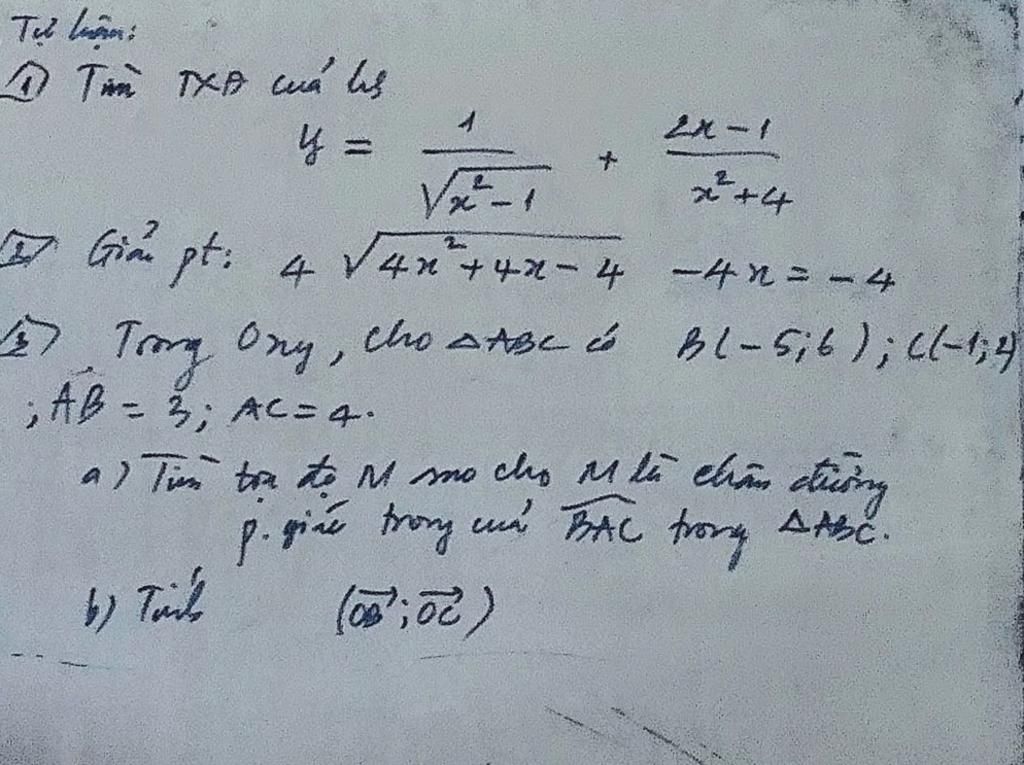 Tự luận:
1) Tìm TXĐ của hs
y = \frac{1}{\sqrt{x^2-1}} + \frac{2x-1}{x^2+4}
2) Giải pt: 4\sqrt{4x^2+4x-4} -4x = -4
3) Trong Oxy, cho △ABC có B(-5;6); C(-1;2)
; AB = 3; AC = 4.
a) Tìm tọa độ M sao cho M là chân đường
p. giác trong của \widehat{BAC} trong △ABC.
b) Tính (\overrightarrow{OB}; \overrightarrow{OC})